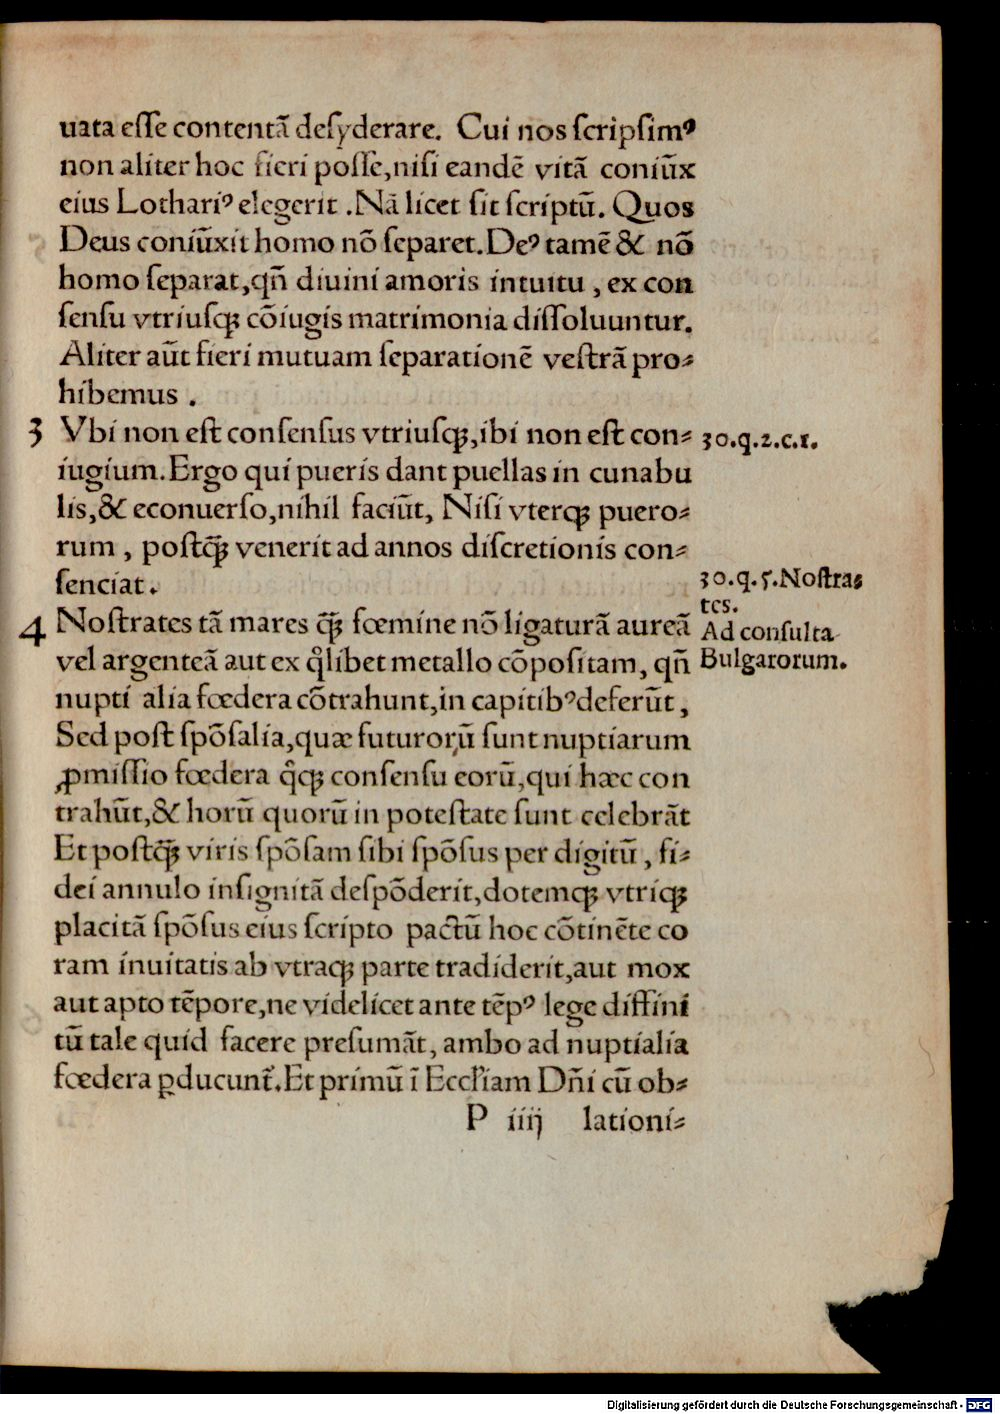 uata eſſe contentã deſyderare. Cui nos ſcripſimꝰ
non aliter hoc fieri poſſe,niſi eandẽ vitã coniũx
eius Lothariꝰ elegerit .Nã licet ſit ſcriptũ. Quos
Deus coniũxit homo nõ ſeparet.Deꝰ tamẽ & nõ
homo ſeparat,qñ diuini amoris intuitu , ex con
ſenſu vtriuſqꝫ cõiugis matrimonia diſſoluuntur.
Aliter aũt fieri mutuam ſeparationẽ veſtrã pro⸗
hibemus .
3 Vbi non eſt conſenſus vtriuſqꝫ,ibi non eſt con⸗ 30.q.2.c.1.
iugium.Ergo qui pueris dant puellas in cunabu
lis,& econuerſo,nihil faciũt, Niſi vterqꝫ puero⸗
rum , poſtq̃ꝫ venerit ad annos diſcretionis con⸗
ſenciat.
30.q.5.Noſtra⸗
tes.
Ad conſulta
Bulgarorum.
4 Noſtrates tã mares q̃ꝫ fœmine nõ ligaturã aureã
vel argenteã aut ex qͥlibet metallo cõpoſitam, qñ
nupti alia fœdera cõtrahunt,in capitibꝰdeferũt ,
Sed poſt ſpõſalia,quæ futurorũ ſunt nuptiarum
ꝓmiſſio fœdera qͥqꝫ conſenſu eorũ,qui hæc con
trahũt,& horũ quorũ in poteſtate ſunt celebrãt
Et poſtq̃ꝫ viris ſpõſam ſibi ſpõſus per digitũ , fi⸗
dei annulo inſignitã deſpõderit,dotemqꝫ vtriqꝫ
placitã ſpõſus eius ſcripto pactũ hoc cõtinẽte co
ram inuitatis ab vtraqꝫ parte tradiderit,aut mox
aut apto tẽpore,ne videlicet ante tẽpꝰ lege diffini
tũ tale quid facere preſumãt, ambo ad nuptialia
fœdera ꝑducunt᷑.Et primũ ĩ Eccl'iam Dñi cũ ob⸗
P iiij lationi⸗
Digitalisierung gefördert durch die Deutsche Forschungsgemeinschaft - DFG